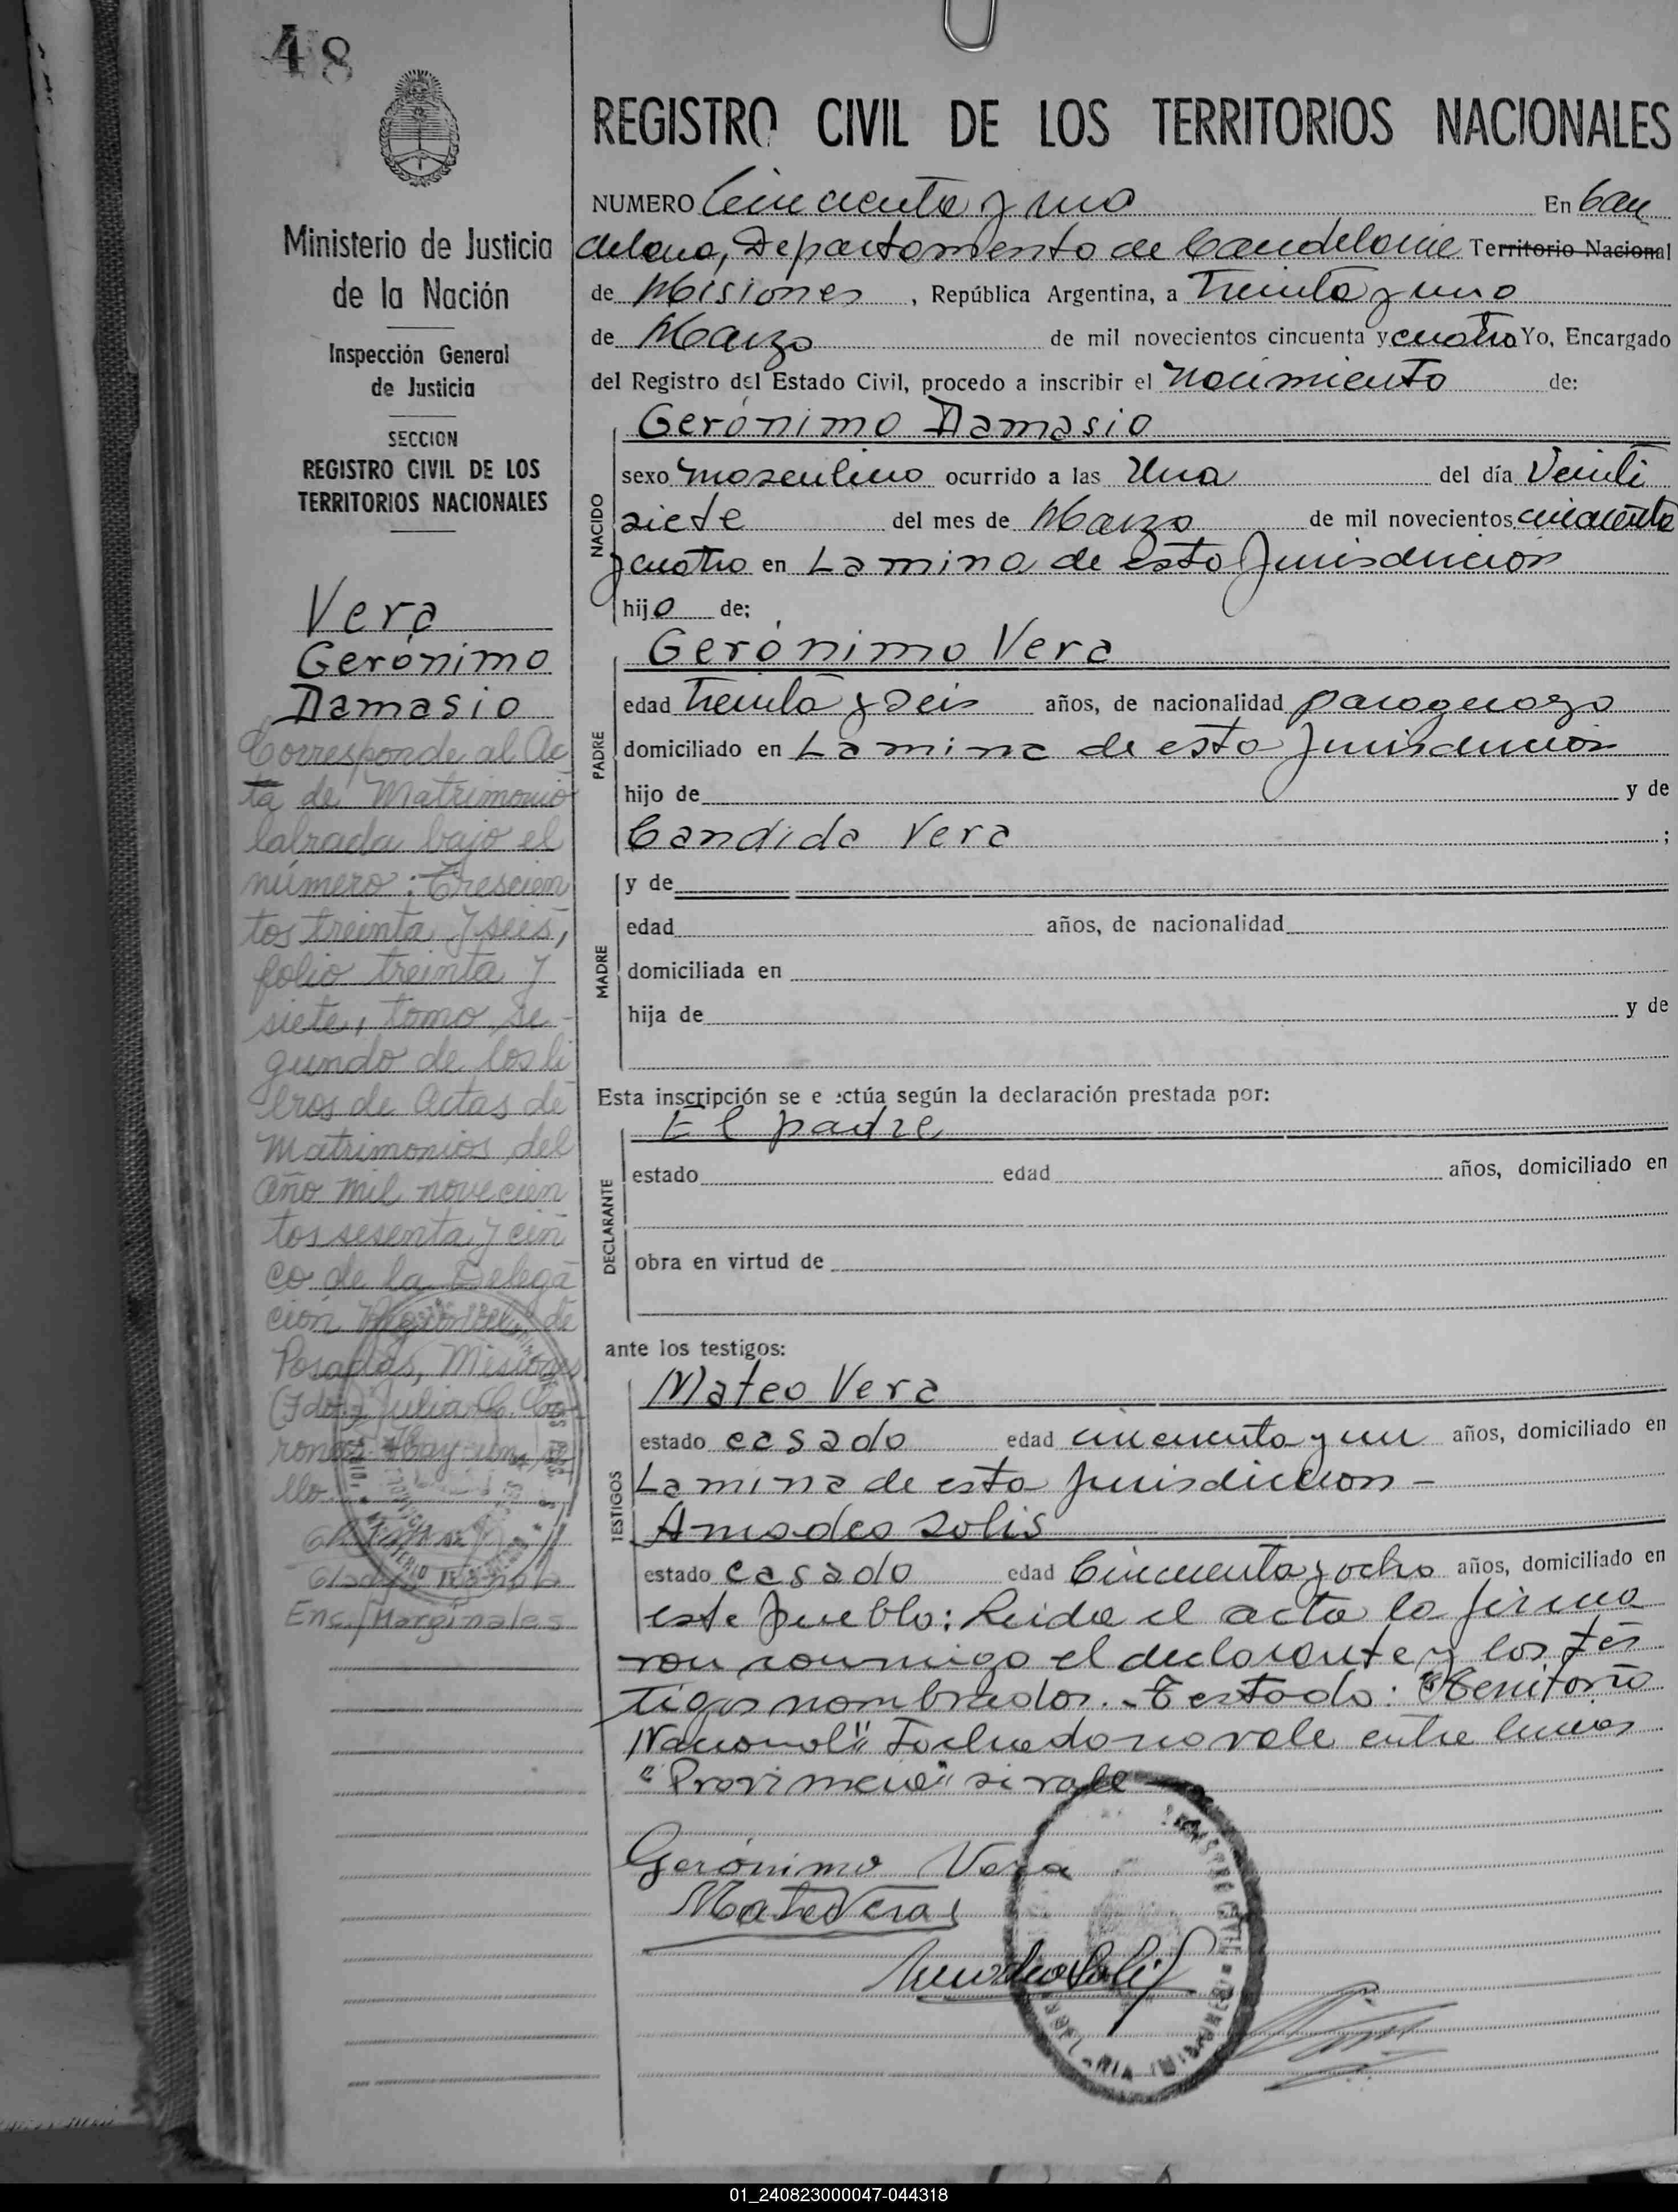 48
Ministerio de Justicia
de la Nación
Inspección General
de Justicia
SECCION
REGISTRO CIVIL DE LOS
TERRITORIOS NACIONALES
Vera
Gerónimo
Damasio
Corresponde al Ac
ta de Matrimonio
labrada bajo el
número: Trescien
tos treinta y seis,
folio treinta y
siete, tomo se-
gundo de los li
bros de Actas de
Matrimonios del
año mil novecien
tos sesenta y cin
co de la Delega
ción Regional de
Posadas, Misiones
(Fdo.) Julian C. Co
ronel Hay un se
llo.
Enc/Marginales
REGISTRO CIVIL DE LOS TERRITORIOS NACIONALES
NUMERO Cincuenta y uno En Can
delaria, Departamento de Candelaria Territorio Nacional
de Misiones, República Argentina, a Treinta y uno
de Marzo de mil novecientos cincuenta y cuatro Yo, Encargado
del Registro del Estado Civil, procedo a inscribir el nacimiento de:
Gerónimo Damasio
NACIDO
sexo masculino ocurrido a las Una del día Veinti
siete del mes de Marzo de mil novecientos cincuenta
y cuatro en La mina de esta Jurisdiccion
hijo de;
Gerónimo Vera
PADRE
edad Treinta y seis años, de nacionalidad paraguayo
domiciliado en La mina de esta Jurisdiccion
hijo de y de
Candida Vera ;
MADRE
y de
edad años, de nacionalidad
domiciliada en
hija de y de
Esta inscripción se e ectúa según la declaración prestada por:
El padre
DECLARANTE
estado edad años, domiciliado en
obra en virtud de
ante los testigos:
Mateo Vera
TESTIGOS
estado casado edad cincuenta y un años, domiciliado en
La mina de esta Jurisdiccion -
Amadeo Solis
estado casado edad Cincuenta y ocho años, domiciliado en
este pueblo: Leida el acta la firma
ron conmigo el declarante y los tes
tigos nombrados. - Testado: "Territorio
Nacional" Tachado no vale entre lineas
"Provincia" si vale
Gerónimo Vera
Mateo Veras
Amadeo Solis
01_240823000047-044318